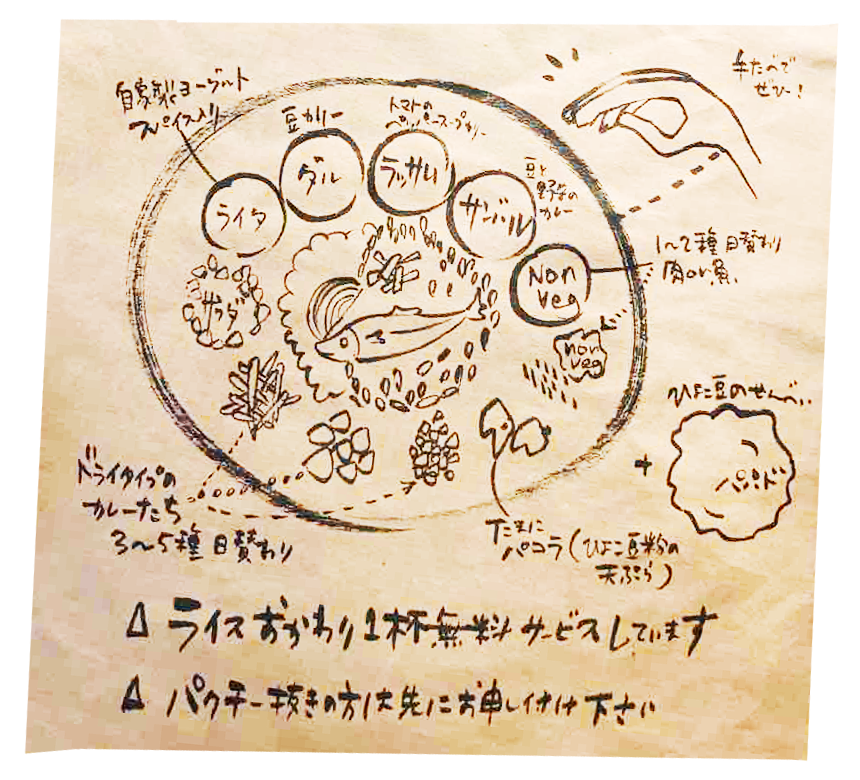 自家製ヨーグルト
スパイス入り
豆カリー
トマトの
ペッパースープカリー
手たべで
ぜひー!
ライタ
ダル
ラッサム
豆と
野菜の
カレー
サンバル
Non
Veg
1〜2種 日替わり
肉or魚
サラダ
non
veg
ひよこ豆のせんべい
+
パパド
ドライタイプの
カレーたち
3〜5種 日替わり
たまに
パコラ(ひよこ豆粉の
天ぷら)
△ ライスおかわり1杯無料サービスしています
△ パクチー抜きの方は先にお申し付け下さい